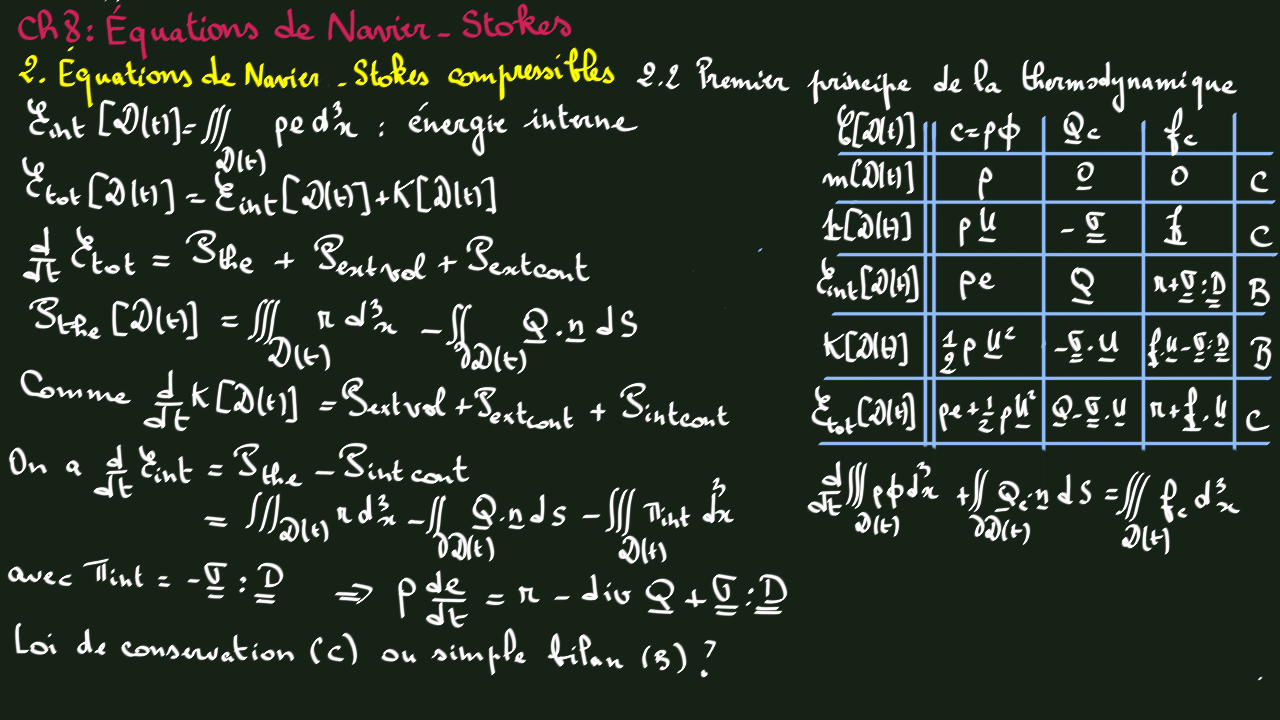 Ch 8: Équations de Navier - Stokes
2. Équations de Navier - Stokes compressibles 2.2 Premier principe de la thermodynamique
ℰint [𝒟(t)] = ∭𝒟(t) ρe d³x : énergie interne
ℰtot [𝒟(t)] = ℰint [𝒟(t)] + K[𝒟(t)]
d/dt ℰtot = Pthe + Pextvol + Pextcont
Pthe [𝒟(t)] = ∭𝒟(t) r d³x - ∬∂𝒟(t) Q̲ . n̲ dS
Comme d/dt K[𝒟(t)] = Pextvol + Pextcont + Pintcont
On a d/dt ℰint = Pthe - Pintcont
= ∭𝒟(t) r d³x - ∬∂𝒟(t) Q̲ . n̲ dS - ∭𝒟(t) πint d³x
avec πint = - σ̳ : D̳ ⇒ ρ de/dt = r - div Q̲ + σ̳ : D̳
Loi de conservation (C) ou simple bilan (B) ?
𝒞[𝒟(t)] c = ρϕ Q̲c fc
m[𝒟(t)] ρ 0̲ 0 C
p̲[𝒟(t)] ρ U̲ - σ̳ f̲ C
ℰint[𝒟(t)] ρe Q̲ r + σ̳ : D̳ B
K[𝒟(t)] ½ ρ U̲² - σ̳ . U̲ f̲ . U̲ - σ̳ : D̳ B
ℰtot[𝒟(t)] ρe + ½ ρU̲² Q̲ - σ̳ . U̲ r + f̲ . U̲ C
d/dt ∭𝒟(t) ρϕ d³x + ∬∂𝒟(t) Q̲c . n̲ dS = ∭𝒟(t) fc d³x